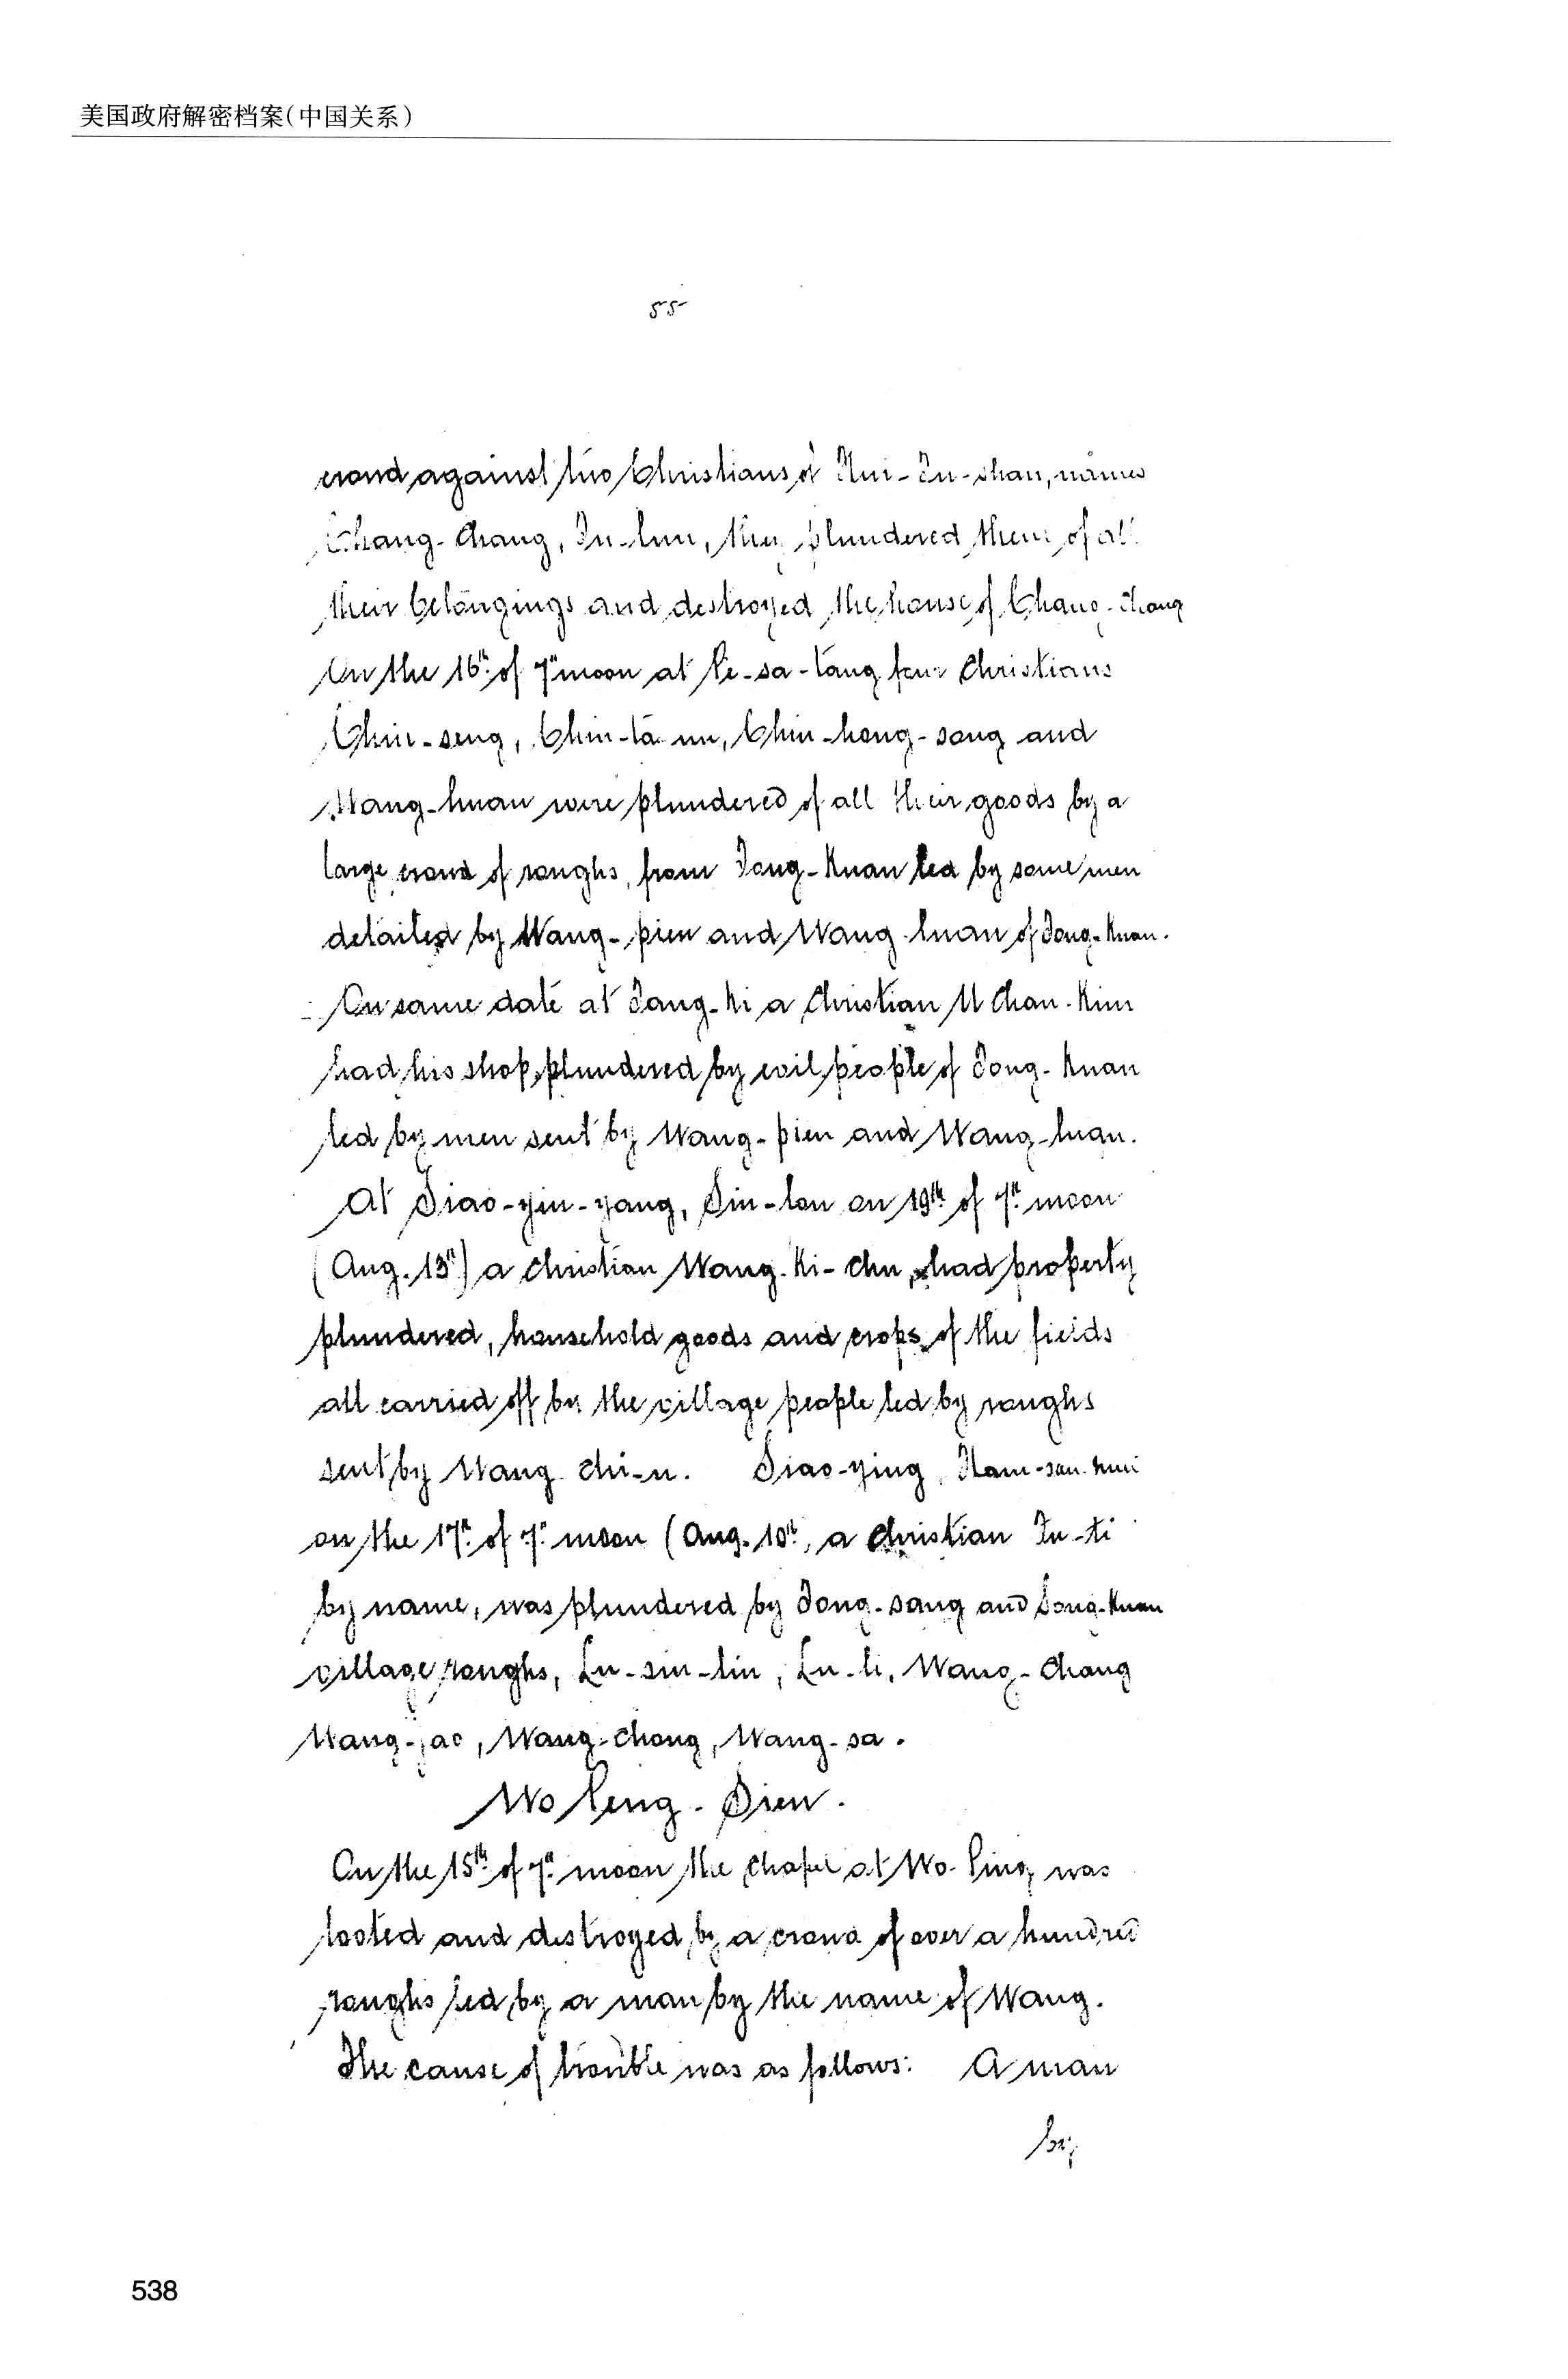 美国政府解密档案(中国关系)
55
crowd against two Christians of Hui-Tu-shan, names
Chang-Chang, Tu-lun, they plundered them of all
their belongings and destroyed the house of Chang-Chang
On the 16th of 7th moon at Pe-sa-tang four Christians
Chin-seng, Chin-ta-, Chin-hong-song and
Wang-huan were plundered of all their goods by a
large crowd of roughs, from Tong-Kuan led by some men
detailed by Wang-pien and Wang-huan of Tong-Kuan.
On same date at Tang-Ki a Christian U Chan-Kim
had his shop plundered by evil people of Tong-Kuan
led by men sent by Wang-pien and Wang-huan.
At Siao-yin-yang, Sin-lou on 19th of 7th moon
(Aug. 13th) a Christian Wang-Ki-Chu, had property
plundered, household goods and crops of the fields
all carried off by the village people led by roughs
sent by Wang-Chi-u. Siao-ying, Ham-san-
on the 17th of 7th moon (Aug. 10th, a Christian Tu-ti
by name, was plundered by Tong-sang and Tong-Kuan
village roughs, Lu-sin-lin, Lu-li, Wang-Chang
Wang-jao, Wang-Chong, Wang-sa.
Wo Peng-Sien.
On the 15th of 7th moon the chapel at Wo-Ping was
looted and destroyed by a crowd of over a hundred
roughs led by a man by the name of Wang.
The cause of trouble was as follows: A man
by
538